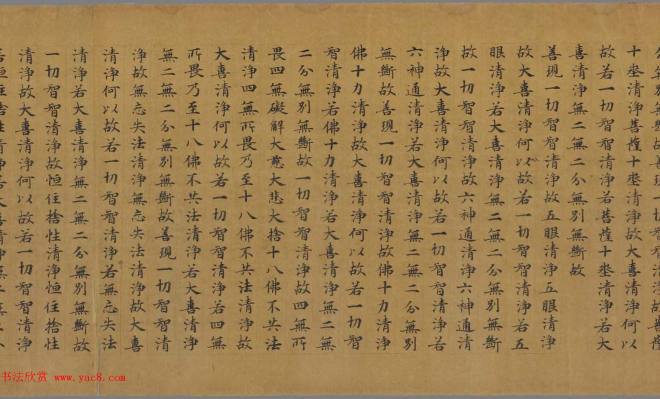 分無別無斷故善現一切智智清淨故菩薩
十埊清淨菩薩十埊清淨故大喜清淨何以
故若一切智智清淨若菩薩十埊清淨若大
喜清淨無二無二分無別無斷故
善現一切智智清淨故五眼清淨五眼清淨
故大喜清淨何以故若一切智智清淨若五
眼清淨若大喜清淨無二無二分無別無斷
故一切智智清淨故六神通清淨六神通清
淨故大喜清淨何以故若一切智智清淨若
六神通清淨若大喜清淨無二無二分無別
無斷故善現一切智智清淨故佛十力清淨
佛十力清淨故大喜清淨何以故若一切智
智清淨若佛十力清淨若大喜清淨無二無
二分無別無斷故一切智智清淨故四無所
畏四無礙解大慈大悲大捨十八佛不共法
清淨四無所畏乃至十八佛不共法清淨故
大喜清淨何以故若一切智智清淨若四無
所畏乃至十八佛不共法清淨若大喜清淨
無二無二分無別無斷故善現一切智智清
淨故無忘失法清淨無忘失法清淨故大喜
清淨何以故若一切智智清淨若無忘失法
清淨若大喜清淨無二無二分無別無斷故
一切智智清淨故恒住捨性清淨恒住捨性
清淨故大喜清淨何以故若一切智智清淨
若恒住捨性清淨若大喜清淨無二無二分
书法欣赏
www.yac8.com